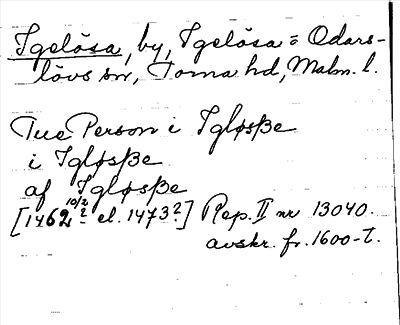 Igelösa, by, Igelösa o Odars-
lövs sn, Torna hd, Malm. l.
Tue Person i Igløsße
i Igløsße
af Igløsße
[1462 10/2 ? el. 1473?] Rep. II nr 13040.
avskr. fr. 1600-t.